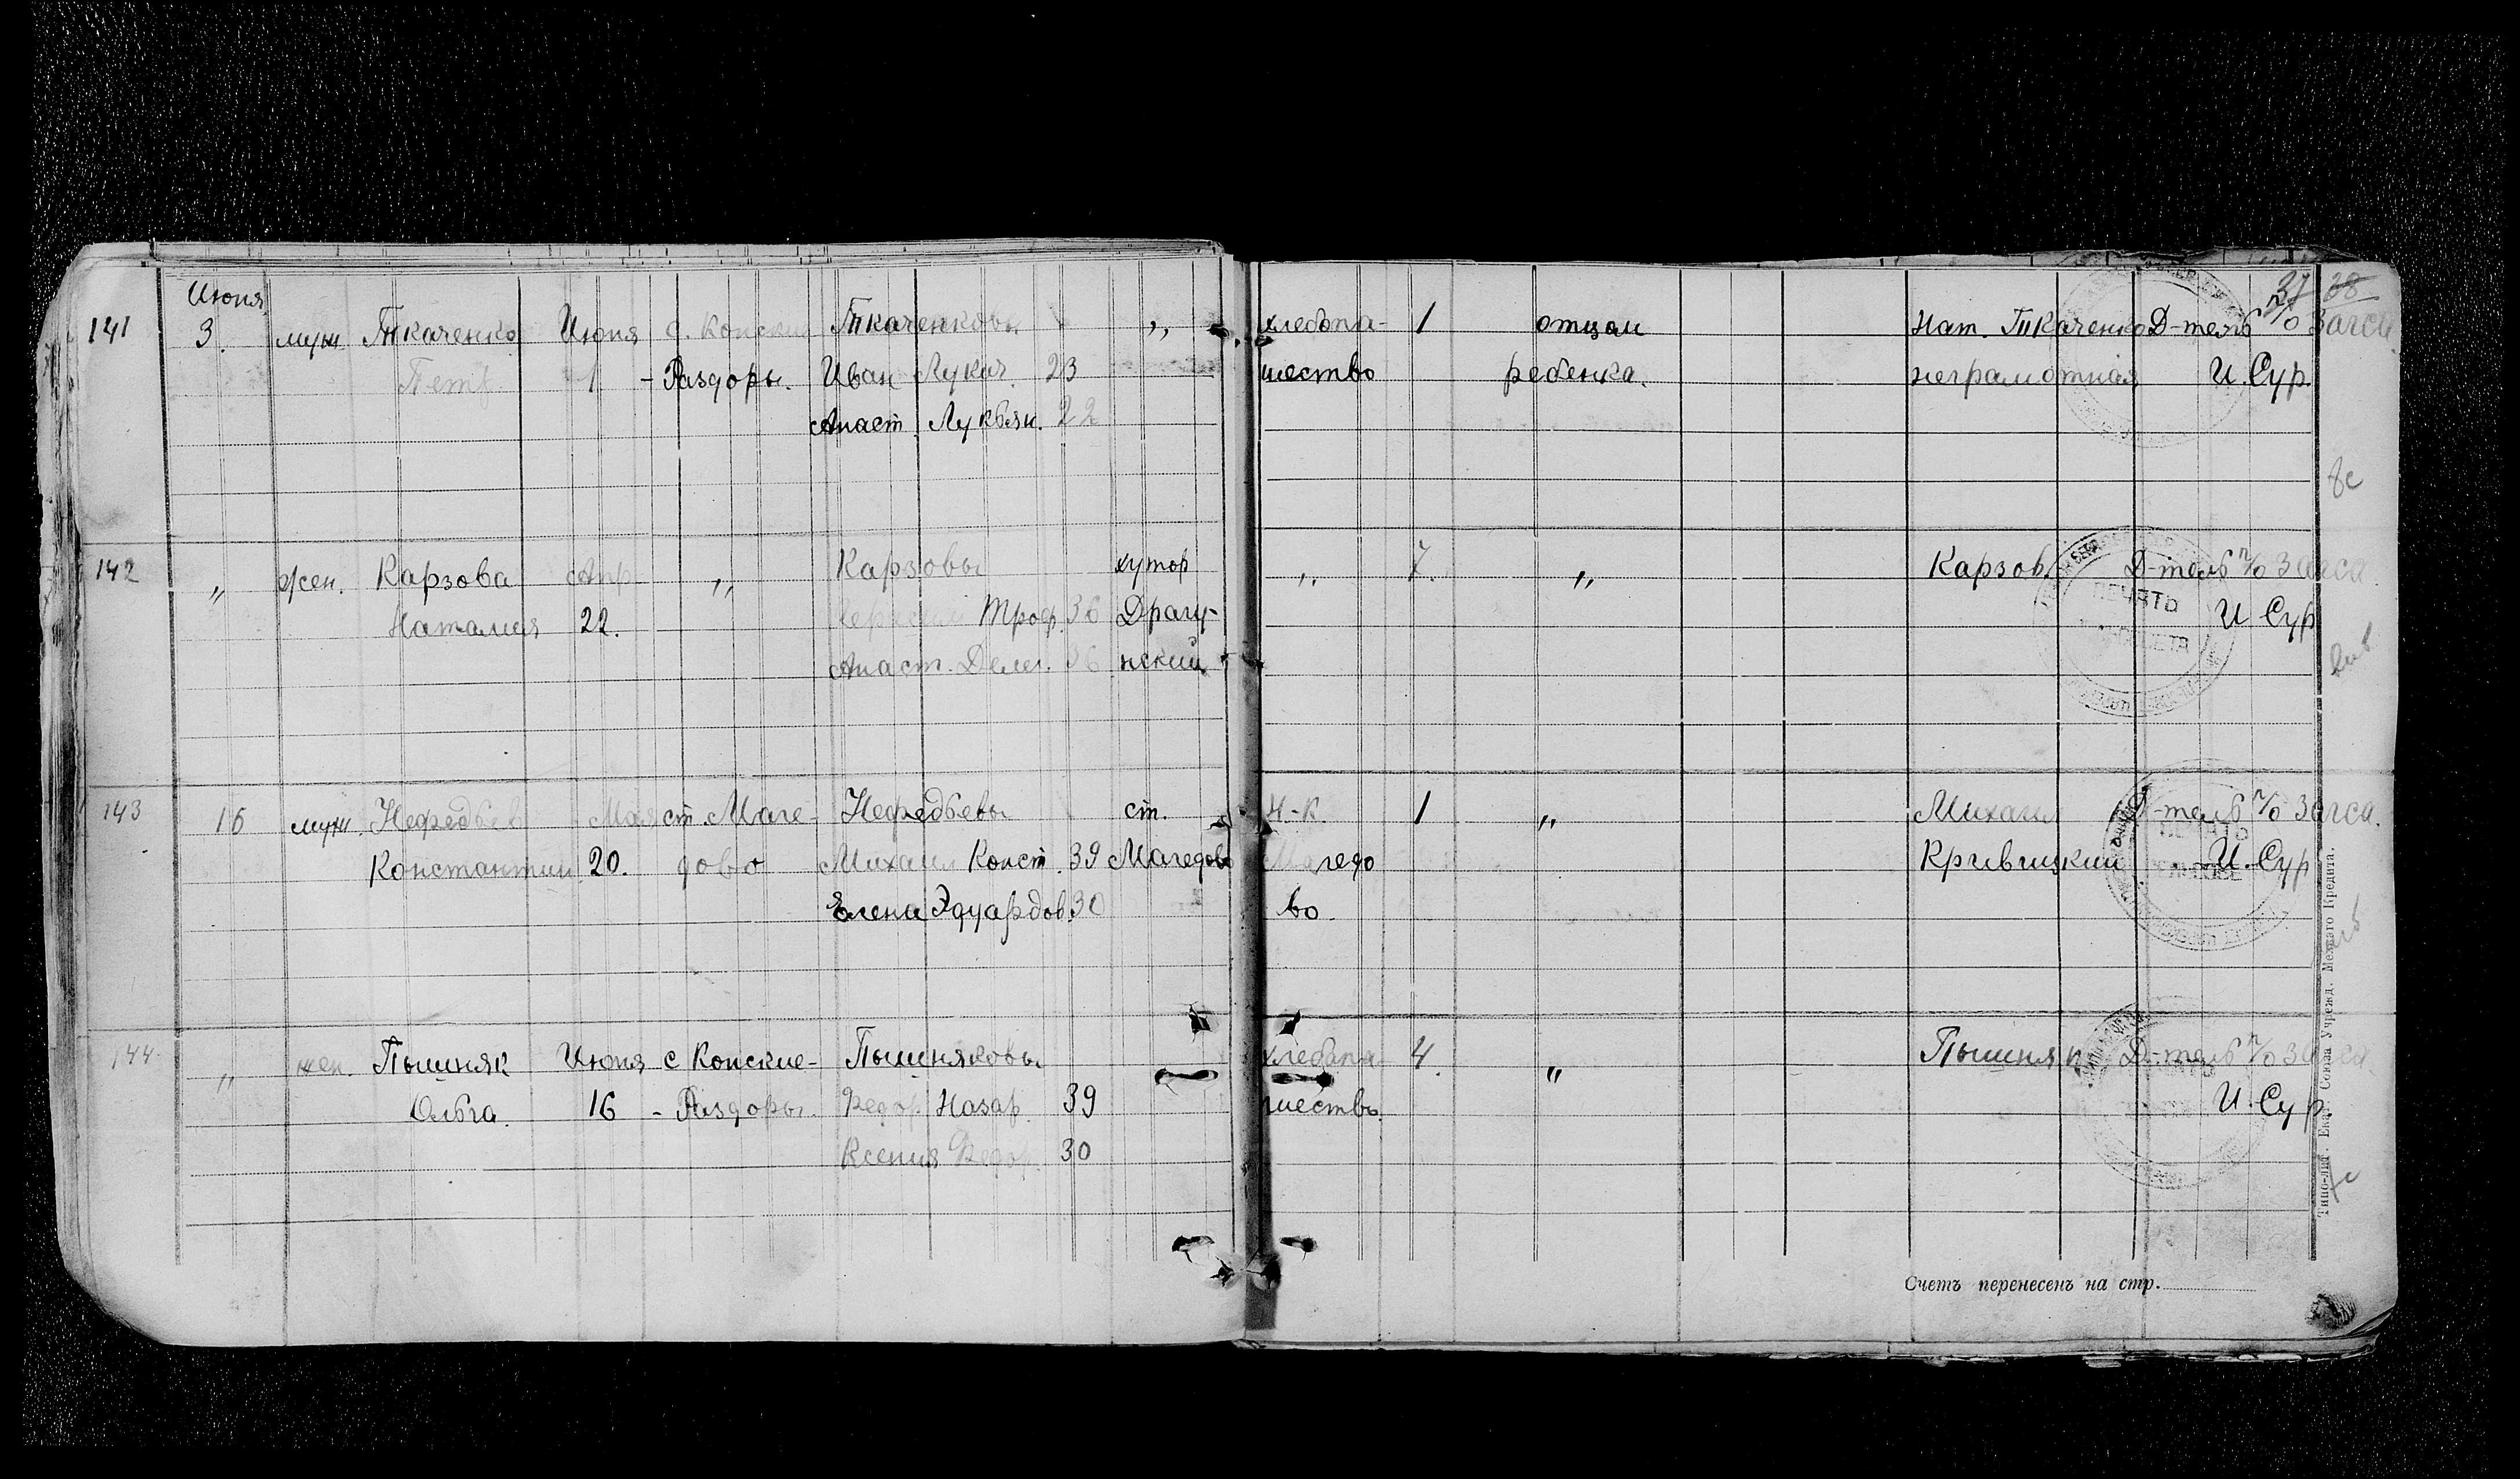 Июня 37 38
141 3. муж Ткаченко Июня с. Конские Ткаченковы „ хлебопа- 1 отцом Нат. Ткаченко Д-тель п/о Загса
Петр 1 - Раздоры. Иван Лукич. 23 шество ребенка. неграмотная И. Сур.
Анаст. Лукьян. 22
142 „ жен. Карзова Апр „ Карзовы хутор „ 7. „ Карзов. Д-тель п/о Загса
Наталия 22. Троф. 36 Драгу- И Сур
Анаст. Дем. 36 нский
ПЕЧАТЬ
143 16 муж. Нефедьев Мая ст. Маге- Нефедьевы ст. Н-К. 1 „ Михаил Д-тель п/о Загса.
Константин 20. дово Михаил Конст. 39 Магедово Магедо Кривицкий И. Сур
Елена Эдуардов. 30 во.
144 „ жен. Пышняк Июня с Конские- Пышняковы хлебопа 4. „ Пышняк Д-тель п/о Загса.
Ольга. 16 - Раздоры. Федор. Назар. 39 шество. И. Сур.
Ксения Федор. 30
Типо-лит. Екат. Союза Учрежд. Мелкаго Кредита.
Счетъ перенесенъ на стр.